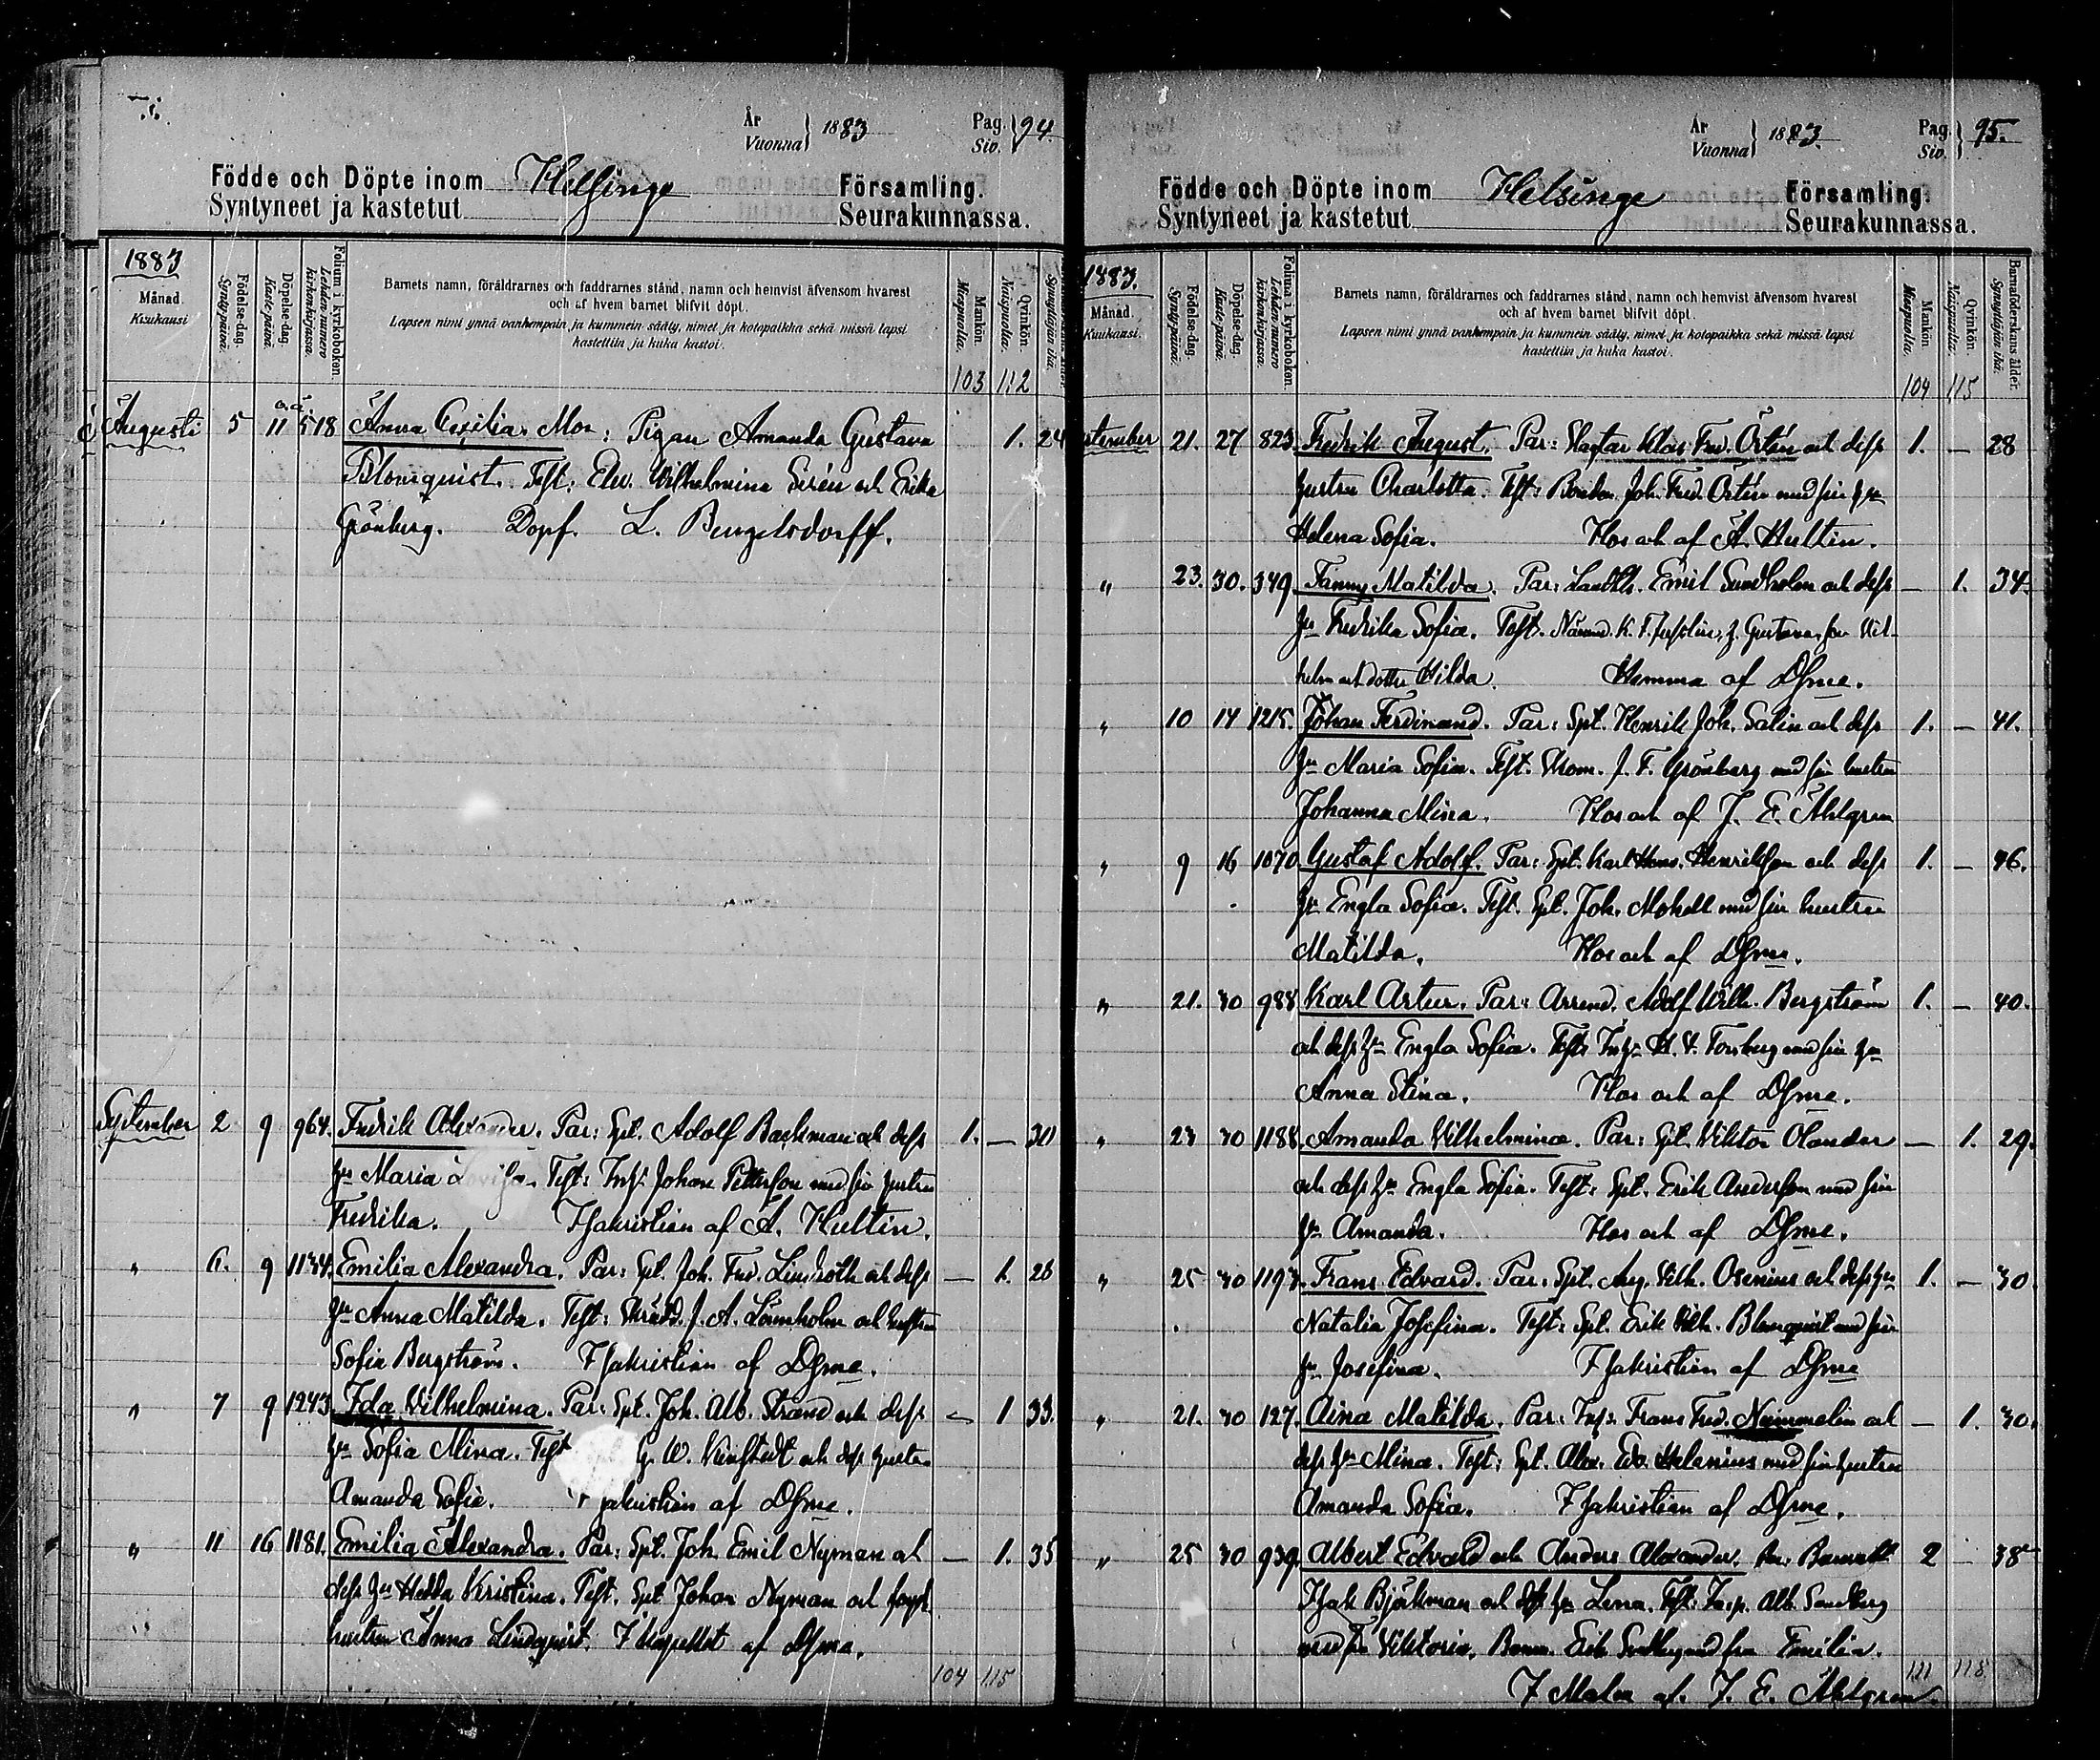 År
Vuonna 1883
Pag.
Siv. 94.
Födde och Döpte inom Helsinge Församling.
Syntyneet ja kastetut Seurakunnassa.
1883
Månad.
Kuukausi
Födelse-dag.
Syntypäivä.
Döpelse-dag.
Kaste-päivä.
Folium i kyrkoboken.
Lehden-numero kirkonkirjassa.
Barnets namn, föräldrarnes och faddrarnes stånd, namn och hemvist äfvensom hvarest
och af hvem barnet blifvit döpt.
Lapsen nimi ynnä vanhempain ja kummein sääty, nimet ja kotopaikka sekä missä lapsi
kastettiin ja kuka kastoi.
Mankön.
Miespuolia.
Qvinkön.
Naispuolia.
103 112
Augusti 5 11 518 Anna Cecilia. Mor: Pigan Amanda Gustava 1. 24
Blomquist. Test: Elev. Wilhelmina Sirén och Erika
Grönberg. Dopf. L. Bengelsdorff.
September 2 9 964. Fredrik Alexander. Par: Spt. Adolf Backman och dess 1. — 30
hu Maria Lovisa. Test: Inh. Johan Pettersson med sin hustru
Fredrika. I sakristian af A. Hultin.
" 6. 9 1134. Emilia Alexandra. Par: Spt. Joh. Fred. Lindroth och dess — 1. 26
hu Anna Matilda. Test: Skrädd. J. A. Lönnholm och hustru
Sofia Bergström. I sakristian af Dsme.
" 7 9 1243. Ida Vilhelmina. Par: Spt. Joh. Alb. Strand och dess — 1 33.
hu Sofia Mina. Test G. W. och dess hustru
Amanda Sofia. I sakristian af Dsme.
" 11 16 1181. Emilia Alexandra. Par: Spt. Joh. Emil Nyman och — 1. 35
dess hu Hedda Kristina. Test. Spt. Johan Nyman och
hustrun Anna Lindqvist. I kapellet af Dsme.
104 115
År
Vuonna 1883.
Pag.
Siv. 95.
Födde och Döpte inom Helsinge Församling.
Syntyneet ja kastetut Seurakunnassa.
1883.
Månad.
Kuukausi.
Födelse-dag.
Syntypäivä.
Döpelse-dag.
Kaste-päivä.
Folium i kyrkoboken.
Lehden-numero kirkonkirjassa.
Barnets namn, föräldrarnes och faddrarnes stånd, namn och hemvist äfvensom hvarest
och af hvem barnet blifvit döpt.
Lapsen nimi ynnä vanhempain ja kummein sääty, nimet ja kotopaikka sekä missä lapsi
kastettiin ja kuka kastoi.
Mankön
Miespuolia.
Qvinkön.
Naispuolia.
Barnaföderskans ålder.
Synnyttäjän ikä.
104 115
tember 21. 27 823. Fredrik August. Par: Slagtar Klas Fred. Örtén och dess 1. — 28
hustru Charlotta. Test: Bonden Joh. Fred. Örtén med sin hu
Helena Sofia. Hos och af A. Hultin.
" 23. 30. 349. Fanny Matilda. Par: Landth. Emil Sundholm och dess — 1. 34.
hu Fredrika Sofia. Test. Nämnd. K. F. h. Gustava, son Vil-
helm och dotter Hilda. Hemma af Dsme.
" 10 14 1215. Johan Ferdinand. Par: Spt. Henrik Joh. Salin och dess 1. — 41.
hu Maria Sofia. Test. Skom. J. F. Grönberg med sin hustru
Johanna Mina. Hos och af J. E. Åhlgren
" 9 16 1070 Gustaf Adolf. Par: Spt. Karl Henriksson och dess 1. — 46.
hu Engla Sofia. Test. Spt. Joh. Mohell med sin hustru
Matilda. Hos och af Dsme.
" 21. 30 988 Karl Artur. Par: Arrend. Adolf Wilh. Bergström 1. — 40.
och dess hu Engla Sofia. Test: Inh. Forsberg med sin hu
Anna Stina. Hos och af Dsme.
" 23 30 1188 Amanda Vilhelmina. Par: Spt. Viktor Olander — 1. 29.
och dess hu Engla Sofia. Test: Spt. Erik Andersson med sin
hu Amanda. Hos och af Dsme.
" 25 30 1193. Frans Edvard. Par: Spt. Aug. Vilh. Osenius och dess hu 1. — 30.
Natalia Josefina. Test: Spt. Erik Vilh. Blomqvist med sin
hu Josefina. I sakristian af Dsme
" 21. 30 127. Aina Matilda. Par: Inh. Frans Fred. Nummelin och — 1. 30.
dess hu Mina. Test: Spt. Alex. Ed. Helenius med sin hustru
Amanda Sofia. I sakristian af Dsme.
" 25 30 939. Albert Edvard och Anders Alexander. Par: 2 — 38
Isak Björkman och dess hu Lena. Test: Insp. Alb. Sandberg
med fru Viktoria. Erik med fru Emilia.
I Malm af J. E. Åhlgren.
111 118